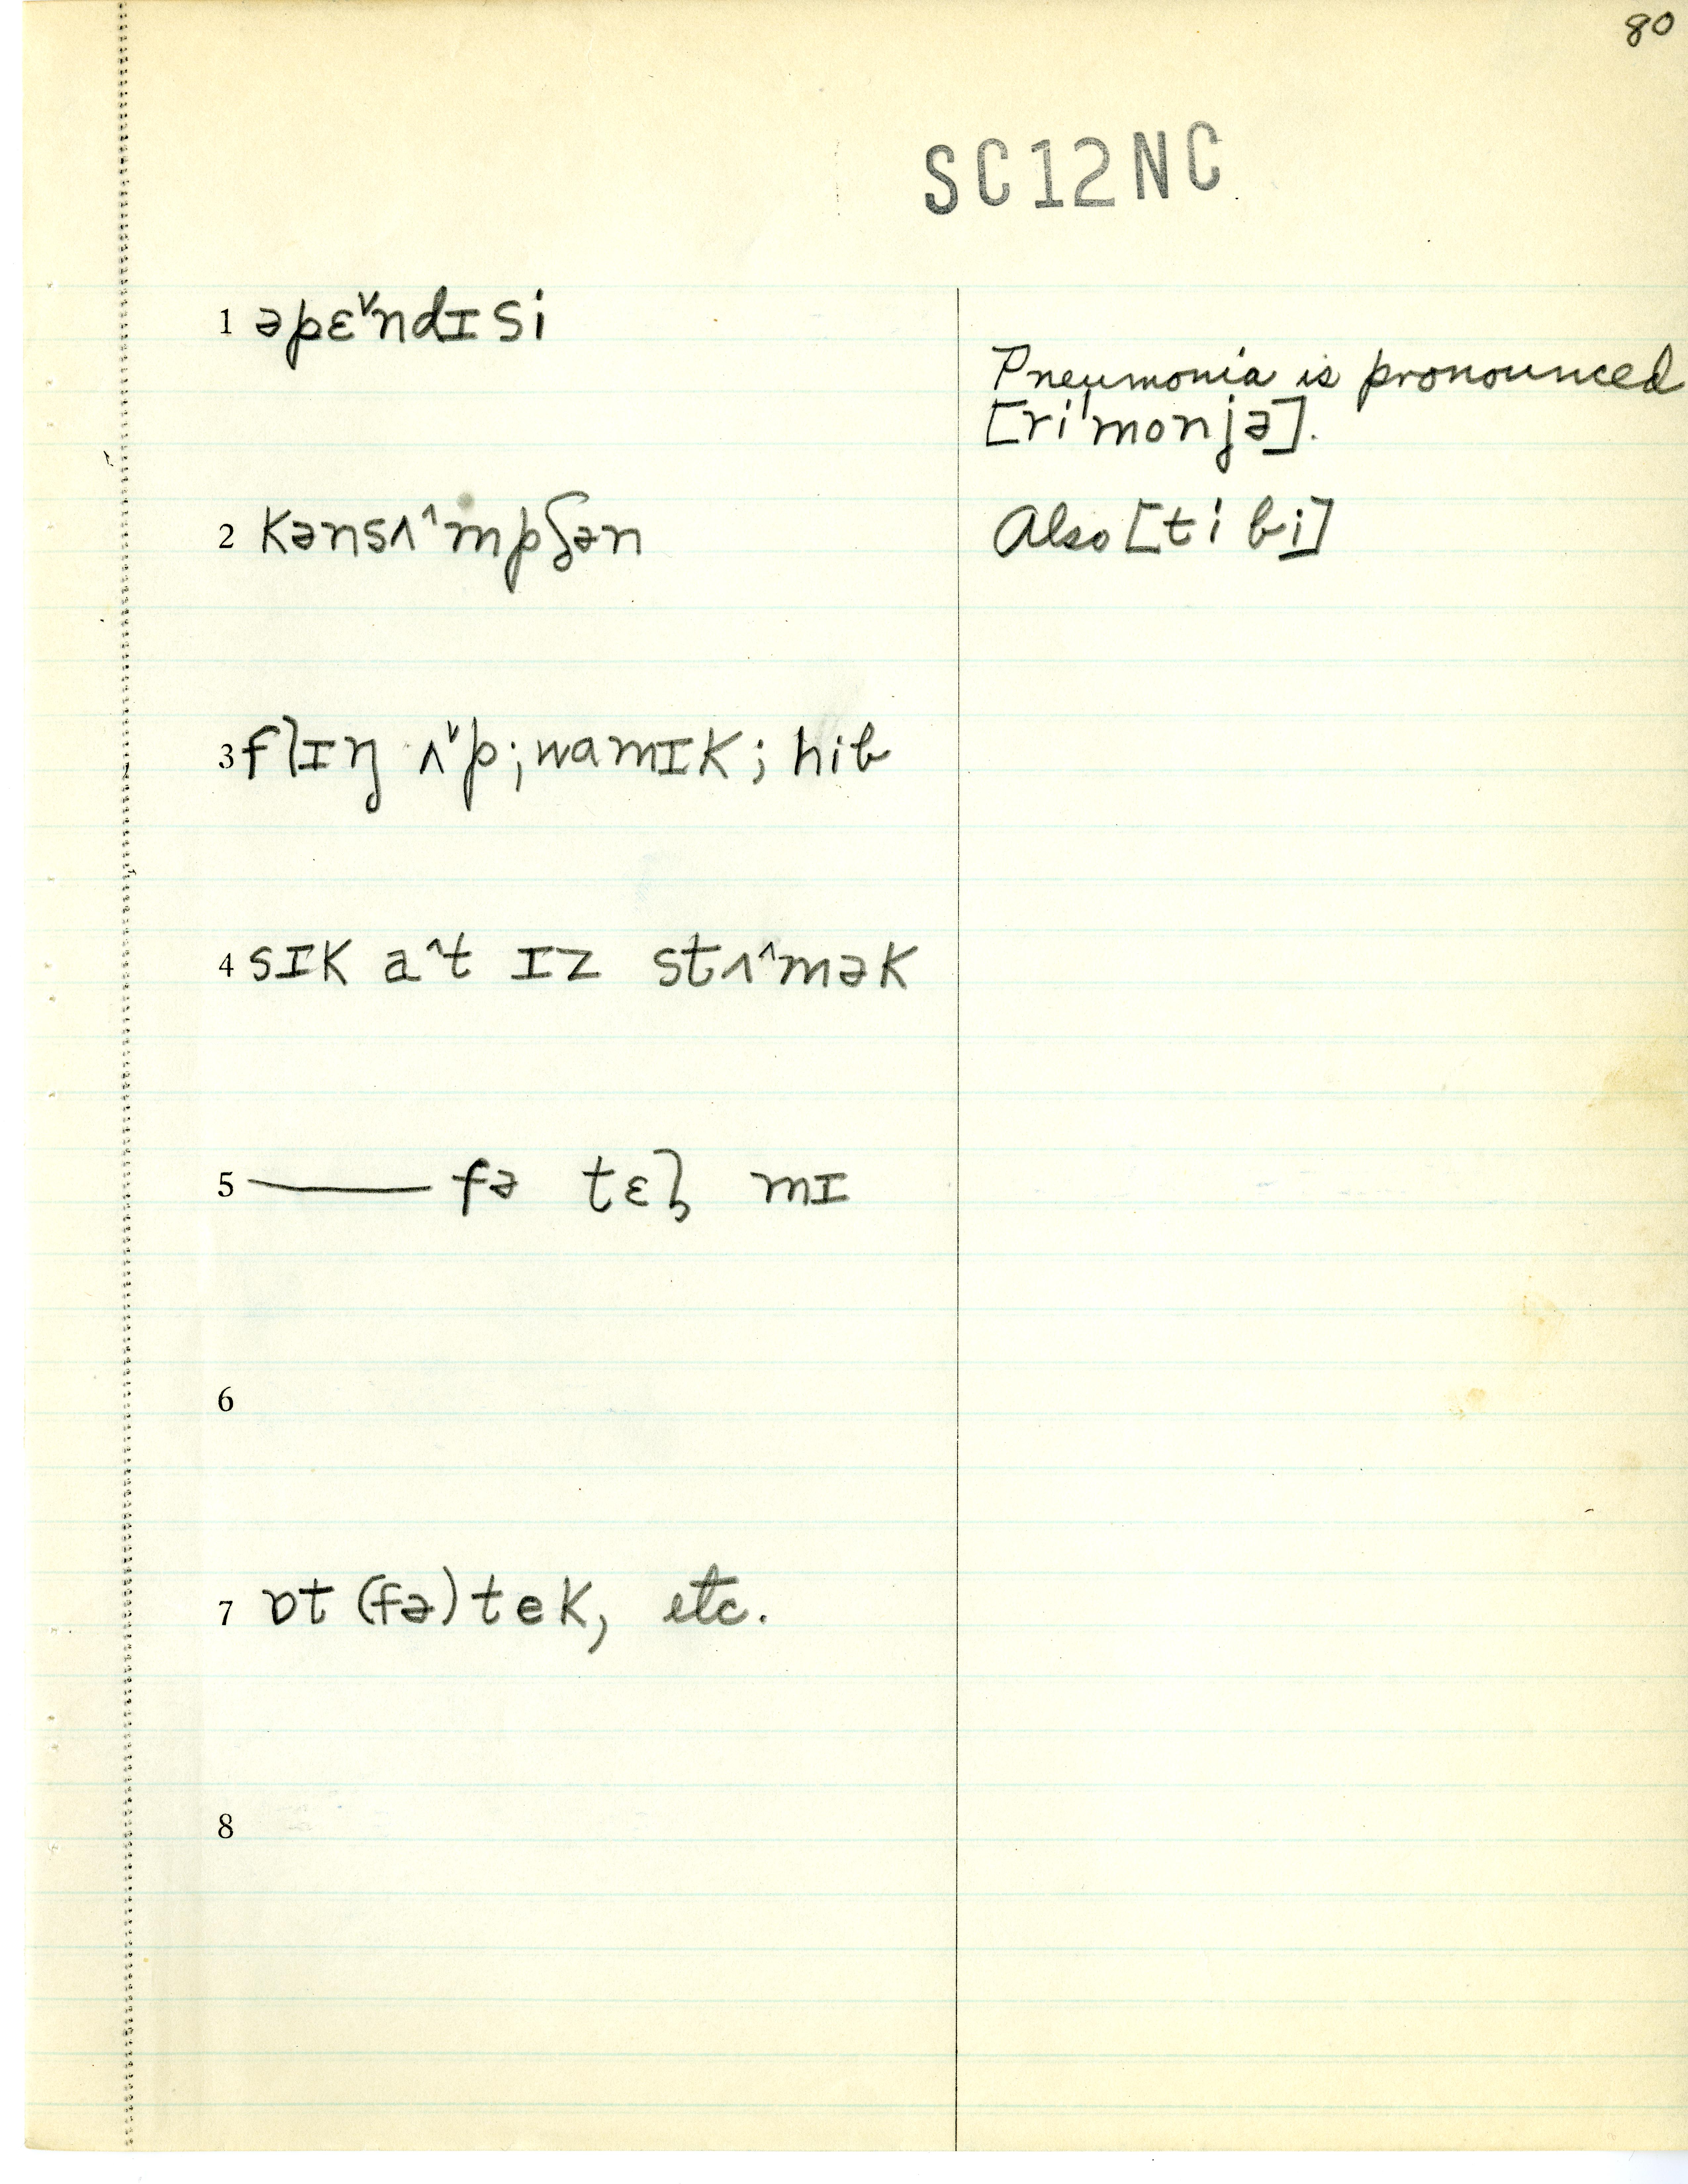 80
SC12NC
1 əpɛ˅ndɪsi
Pneumonia is pronounced
[ri'monjə].
2 kənsʌ˄mpʃən
Also [tibi]
3 flɪŋ ʌ˅p; wamɪk; hib
4 sɪk a˄t ɪz stʌ˄mək
5 —— fə tɛɮ mɪ
6
7 ɒt (fə) tek, etc.
8